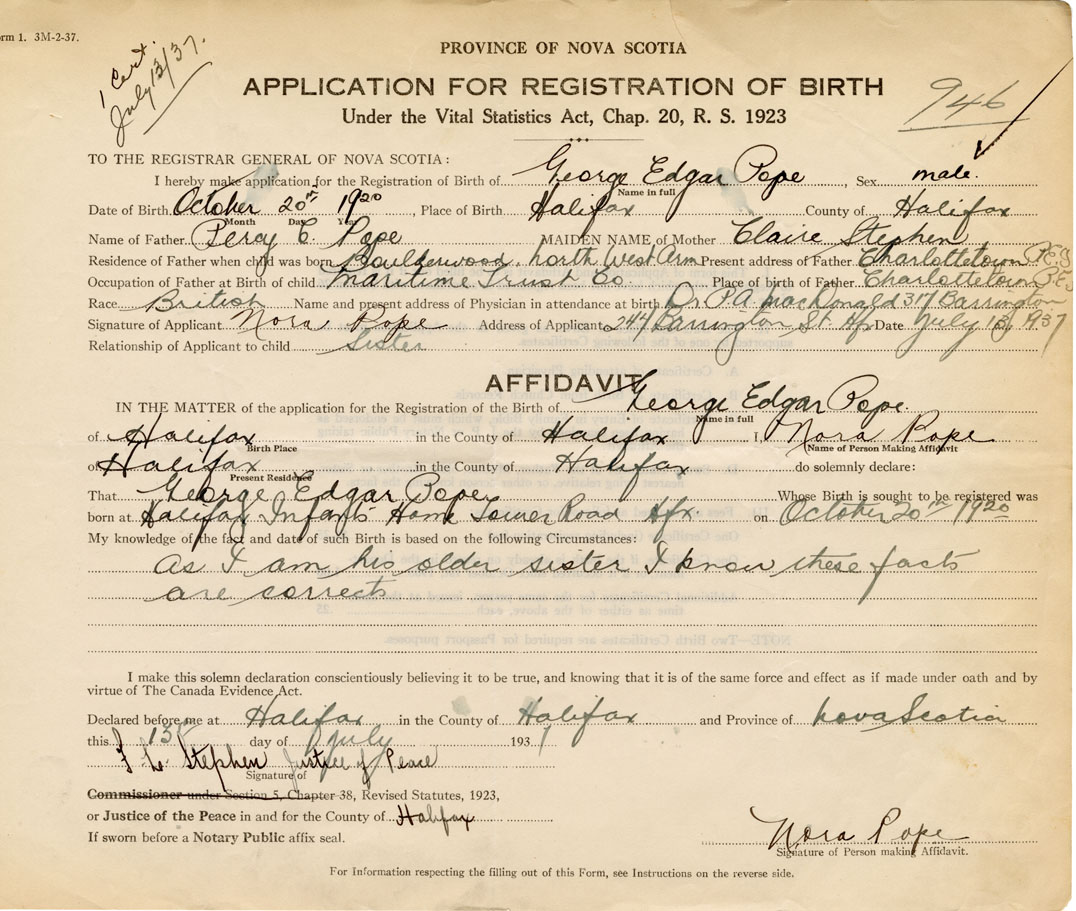 orm 1. 3M-2-37.
1 Cert.
July 13/37.
946
PROVINCE OF NOVA SCOTIA
APPLICATION FOR REGISTRATION OF BIRTH
Under the Vital Statistics Act, Chap. 20, R. S. 1923
TO THE REGISTRAR GENERAL OF NOVA SCOTIA:
I hereby make application for the Registration of Birth of George Edgar Pope, Sex male.
Name in full
Date of Birth October 20th 1920, Place of Birth Halifax County of Halifax
Month Day Year
Name of Father Percy E. Pope MAIDEN NAME of Mother Claire Stephen
Residence of Father when child was born Boulderwood, North West Arm Present address of Father Charlottetown P.E.I
Occupation of Father at Birth of child Maritime Trust Co. Place of birth of Father Charlottetown P.E.I
Race British Name and present address of Physician in attendance at birth Dr P.A. MacDonald 317 Barrington
Signature of Applicant Nora Pope Address of Applicant 244 Barrington St. Hfx Date July 13, 1937
Relationship of Applicant to child Sister
AFFIDAVIT
IN THE MATTER of the application for the Registration of the Birth of George Edgar Pope.
Name in full
of Halifax in the County of Halifax I, Nora Pope
Birth Place Name of Person Making Affidavit
of Halifax in the County of Halifax do solemnly declare:
Present Residence
That George Edgar Pope Whose Birth is sought to be registered was
born at Halifax Infants Home Tower Road Hfx. on October 20th 1920
My knowledge of the fact and date of such Birth is based on the following Circumstances:
As I am his older sister I know these facts
are corrects
NOTE—Two Birth Certificates are required for Passport purposes.
I make this solemn declaration conscientiously believing it to be true, and knowing that it is of the same force and effect as if made under oath and by
virtue of The Canada Evidence Act.
Declared before me at Halifax in the County of Halifax and Province of Nova Scotia
this 13th day of July 1937
F. L. Stephen Justice of Peace
Signature of
Commissioner under Section 5, Chapter 38, Revised Statutes, 1923,
or Justice of the Peace in and for the County of Halifax
If sworn before a Notary Public affix seal.
Nora Pope
Signature of Person making Affidavit.
For Information respecting the filling out of this Form, see Instructions on the reverse side.